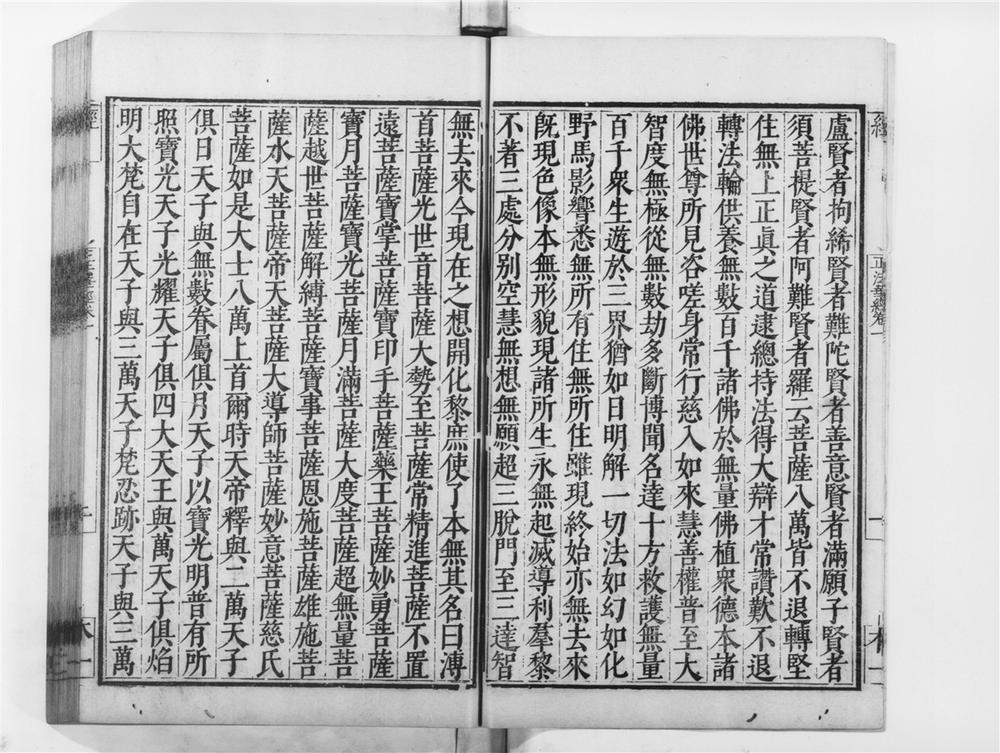 盧賢者拘絺賢者難陀賢者善意賢者滿願子賢者
須菩提賢者阿難賢者羅云菩薩八萬皆不退轉堅
住無上正眞之道逮總持法得大辯才常讚歎不退
轉法輪供養無數百千諸佛於無量佛植衆德本諸
佛世尊所見咨嗟身常行慈入如來慧善權普至大
智度無極從無數劫多斷博聞名達十方救護無量
百千衆生遊於三界猶如日明解一切法如幻如化
野馬影響悉無所有住無所住雖現終始亦無去來
旣現色像本無形貌現諸所生永無起滅導利羣黎
不著三處分別空慧無想無願超三脫門至三達智
無去來今現在之想開化黎庶使了本無其名曰溥
首菩薩光世音菩薩大勢至菩薩常精進菩薩不置
遠菩薩寶掌菩薩寶印手菩薩藥王菩薩妙勇菩薩
寶月菩薩寶光菩薩月滿菩薩大度菩薩超無量菩
薩越世菩薩解縛菩薩寶事菩薩恩施菩薩雄施菩
薩水天菩薩帝天菩薩大導師菩薩妙意菩薩慈氏
菩薩如是大士八萬上首爾時天帝釋與二萬天子
俱日天子與無數眷屬俱月天子以寶光明普有所
照寶光天子光耀天子俱四大天王與萬天子俱焰
明大梵自在天子與三萬天子梵忍跡天子與三萬
經
正法華經卷一